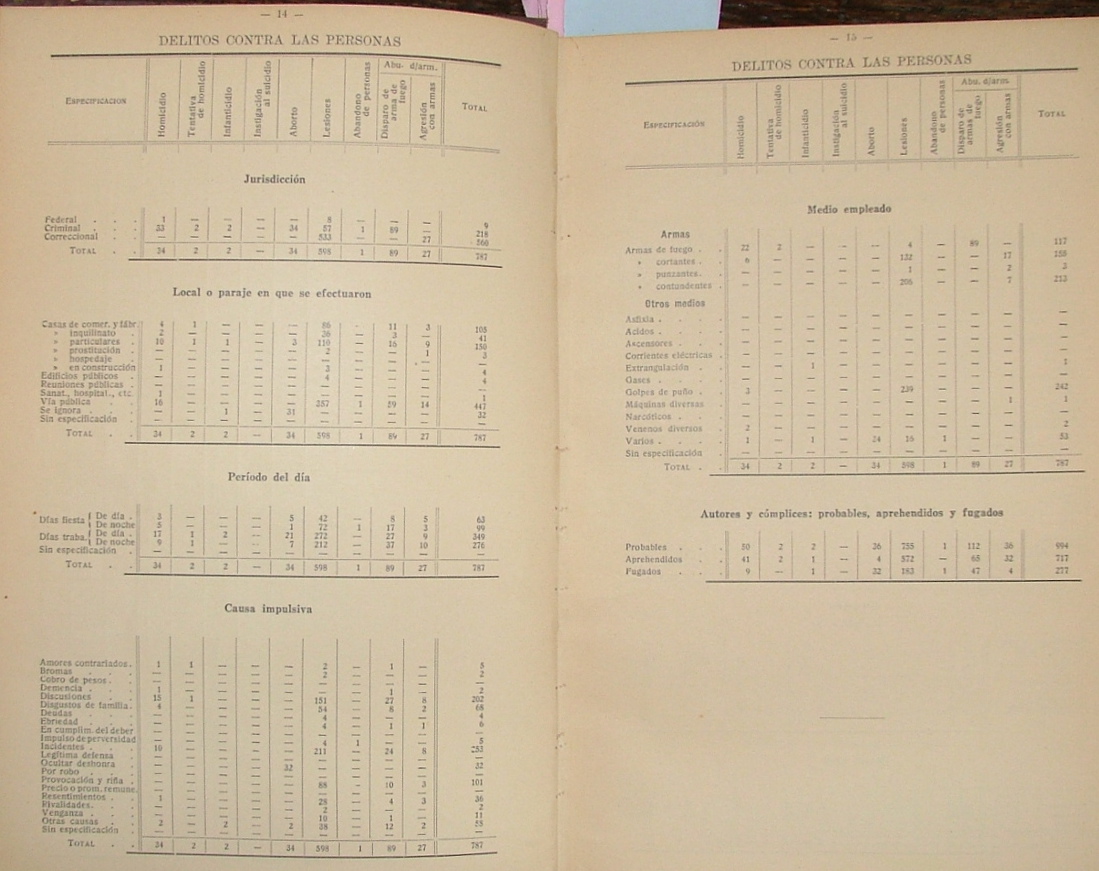 — 14 —
DELITOS CONTRA LAS PERSONAS
ESPECIFICACION Homicidio Tentativa de homicidio Infanticidio Instigación al suicidio Aborto Lesiones Abandono de personas Abu. d/arm. Disparo de arma de fuego Agresión con armas TOTAL
Jurisdicción
Federal . . . 1 — — — — 8 — — — 9
Criminal . . . 33 2 2 — 34 57 1 89 — 218
Correccional . . — — — — — 533 — — 27 560
TOTAL . . 34 2 2 — 34 598 1 89 27 787
Local o paraje en que se efectuaron
Casas de comer. y fábr. 4 1 — — — 86 - 11 3 105
» inquilinato . 2 — — — — 36 — 3 — 41
» particulares . 10 1 1 — 3 110 — 16 9 150
» prostitución . — — — — — 2 — — 1 3
» hospedaje . — — — — — — — — — —
» en construcción 1 — — — — 3 — — — 4
Edificios públicos . — — — — — 4 — — — 4
Reuniones públicas . — — — — — — — — — —
Sanat., hospital., etc. 1 — — — — — — — — 1
Vía pública . . 16 — — — — 357 1 59 14 447
Se ignora . . . — — 1 — 31 — — — — 32
Sin especificación . — — — — — — — — — —
TOTAL . . 34 2 2 — 34 598 1 89 27 787
Período del día
Días fiesta { De día . 3 — — — 5 42 — 8 5 63
De noche 5 — — — 1 72 1 17 3 99
Días traba. { De día . 17 1 2 — 21 272 — 27 9 349
De noche 9 1 — — 7 212 — 37 10 276
Sin especificación . — — — — — — — — — —
TOTAL . . 34 2 2 — 34 598 1 89 27 787
Causa impulsiva
Amores contrariados . 1 1 — — — 2 — 1 — 5
Bromas . . . — — — — — 2 — — — 2
Cobro de pesos . . — — — — — — — — — —
Demencia . . . 1 — — — — — — 1 — 2
Discusiones . . 15 1 — — — 151 — 27 8 202
Disgustos de familia . 4 — — — — 54 — 8 2 68
Deudas . . . — — — — — 4 — — — 4
Ebriedad . . . — — — — — 4 — 1 1 6
En cumplim. del deber — — — — — — — — — —
Impulso de perversidad — — — — — 4 1 — — 5
Incidentes . . . 10 — — — — 211 — 24 8 253
Legítima defensa . — — — — — — — — — —
Ocultar deshonra . — — — — 32 — — — — 32
Por robo . . . — — — — — — — — — —
Provocación y riña . — — — — — 88 - 10 3 101
Precio o prom. remune. — — — — — — — — — —
Resentimientos . . 1 — — — — 28 — 4 3 36
Rivalidades . . . — — — — — 2 — — — 2
Venganza . . . — — — — — 10 — 1 — 11
Otras causas . . 2 — 2 — 2 38 — 12 2 58
Sin especificación . — — — — — — — — — —
TOTAL . . 34 2 2 — 34 598 1 89 27 787
— 15 —
DELITOS CONTRA LAS PERSONAS
ESPECIFICACIÓN Homicidio Tentativa de homicidio Infanticidio Instigación al suicidio Aborto Lesiones Abandono de personas Abu. d/arm. Disparo de armas de fuego Agresión con armas TOTAL
Medio empleado
Armas
Armas de fuego . . 22 2 — — — 4 — 89 — 117
» cortantes . . 6 — — — — 132 — — 17 155
» punzantes . . — — — — — 1 — — 2 3
» contundentes . — — — — — 206 — — 7 213
Otros medios
Asfixia . . . . — — — — — — — — — —
Acidos . . . . — — — — — — — — — —
Ascensores . . . — — — — — — — — — —
Corrientes eléctricas . — — — — — — — — — —
Extrangulación . . — — 1 — — — — — — 1
Gases . . . . — — — — — — — — — —
Golpes de puño . . 3 — — — — 239 — — — 242
Máquinas diversas . — — — — — — — — 1 1
Narcóticos . . . — — — — — — — — — —
Venenos diversos . 2 — — — — — — — — 2
Varios . . . . 1 — 1 — 34 16 1 — — 53
Sin especificación . — — — — — — — — — —
TOTAL . . 34 2 2 — 34 598 1 89 27 787
Autores y cómplices: probables, aprehendidos y fugados
Probables . . . 50 2 2 — 36 755 1 112 36 994
Aprehendidos . . 41 2 1 — 4 572 — 65 32 717
Fugados . . . 9 — 1 — 32 183 1 47 4 277